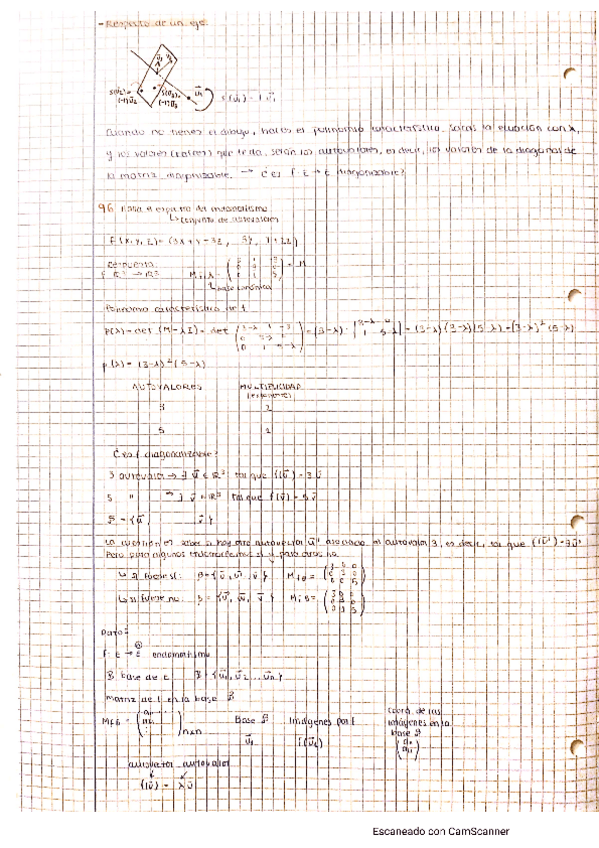 - Respecto de un eje.
S(u⃗₂)= (-1)u⃗₂
S(u⃗₃)= (-1)u⃗₃
u⃗₁
f(u⃗₁) = 1 u⃗₁
Cuando no tienes el dibujo, haces el polinomio característico, sacas la ecuación con λ,
y los valores (raíces) que te da, serán los autovalores, es decir, los valores de la diagonal de
la matriz diagonalizable. → ¿es f: E → E diagonalizable?
96 Halla el espectro del endomorfismo
↳ conjunto de autovalores
f(x,y,z) = (3x+y-3z, 3y, y+5z)
Respuesta
f: ℝ³ → ℝ³
= M
↳ base canónica
Polinomio característico de f
P(λ) = det (M-λI) = det (3-λ 1 -3 / 0 3-λ 0 / 0 1 5-λ) = (3-λ) · |3-λ 0 / 1 5-λ| = (3-λ)(3-λ)(5-λ) = (3-λ)² (5-λ)
p(λ) = (3-λ)² (5-λ)
AUTOVALORES MULTIPLICIDAD
(exponente)
3 2
5 1
¿Es f diagonalizable?
3 autovalor → ∃ u⃗ ∈ ℝ³ tal que f(u⃗) = 3u⃗
5 " → ∃ v⃗ ∈ ℝ³ tal que f(v⃗) = 5v⃗
B = {u⃗, v⃗}
La cuestión es saber si hay otro autovector u⃗' asociado al autovalor 3, es decir, tal que f(u⃗') = 3u⃗'
Pero para algunos endomorfismos sí y para otros no.
↳ si fuese sí: B = {u⃗, u⃗', v⃗} M_fB = (3 0 0 / 0 3 0 / 0 0 5)
↳ si fuese no: B = {u⃗, w⃗, v⃗} M_fB =
Dato:
f: E → E endomorfismo
B base de E B = {u⃗₁, u⃗₂ ... u⃗n}
matriz de f en la base B
M_fB = n×n
Base B Imágenes por f
Coord. de las
imágenes en la
base B
u⃗₁ f(u⃗₁)
autovector autovalor
f(u⃗) = λu⃗
Escaneado con CamScanner